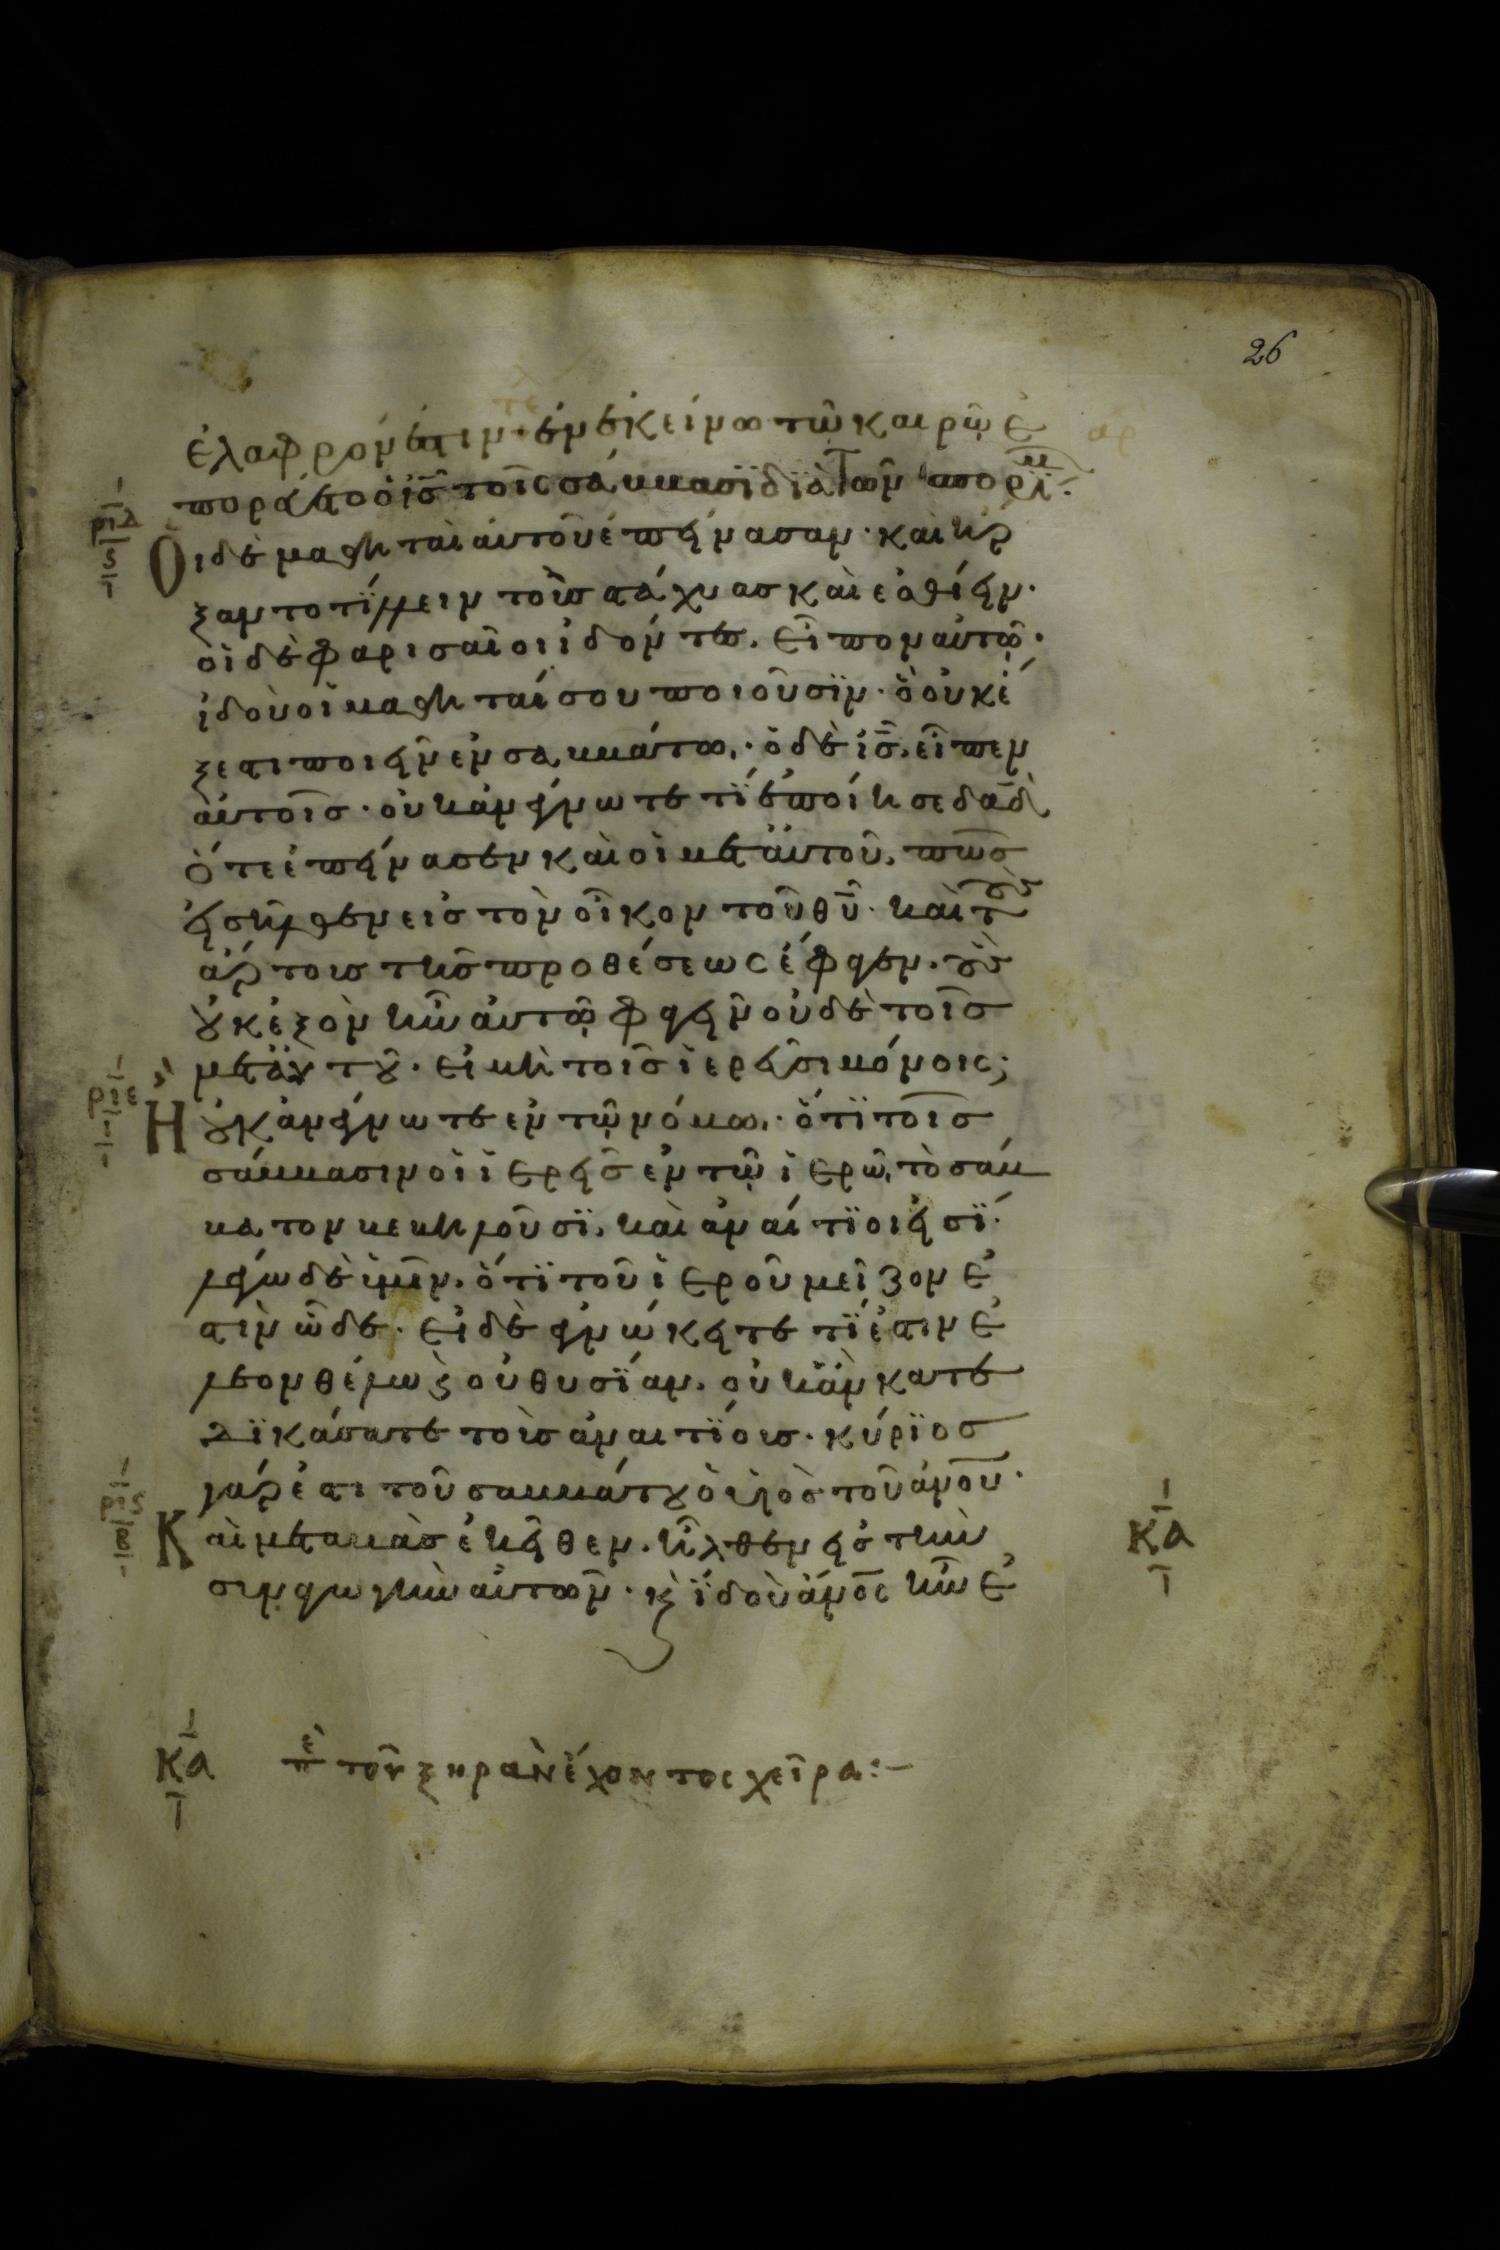 26
ἐλαφρόν ἐστιν· ἐν ἐκείνω τῶ καιρῶ ἐ
πορεύετο ὁ ἰς τοῖς σάββασϊ δϊὰ τῶν σπορϊμ·
ριδ
ς
Οἱ δὲ μαθηταὶ αὐτοῦ ἐπείνασαν· καὶ ἤρ
ξαντο τΐλλειν τοὺς στάχυας καὶ ἐσθίειν·
οἱ δὲ φαρισαῖοι ἰδόντες, εἶπον αὐτῶ·
ἰδοὺ οἱ μαθηταί σου ποιοῦσϊν· ὃ οὐκ ἔ
ξεστι ποιεῖν ἐν σαββάτω· ὁ δὲ ἰς, εἶπεν
αὐτοῖς· οὐκ ἀνέγνωτε τΐ ἐποίησε δαδ
ὅτε ἐπείνασεν καὶ οἱ μετ αὐτοῦ, πῶς
εἰσῆλθεν εἰς τὸν οἶκον τοῦ θυ· καὶ τοὺς
ἄρτους τῆς προθέσεως ἔφαγεν· οὓς
οὐκ ἐξὸν ἦν αὐτῶ φαγεῖν οὐδὲ τοῖς
μετ αὐτοῦ· εἰ μὴ τοῖς ἱερεῦσι μόνοις;
ριε
ι
Ἢ οὐκ ἀνέγνωτε ἐν τῶ νόμω· ὅτϊ τοῖς
σάββασιν οἱ ἱερεῖς ἐν τῶ ἱερῶ, τὸ σάβ
βατον βεβηλοῦσϊ, καὶ ἀναίτϊοι εἰσΐ·
λέγω δὲ ὑμῖν, ὅτϊ τοῦ ἱεροῦ μεῖζον ἐ
στὶν ὧδε· εἰ δὲ ἐγνώκειτε τΐ ἐστιν ἔ
λεον θέλω καὶ οὐ θυσΐαν, οὐκ ἂν κατε
δϊκάσατε τοὺς ἀναιτΐους· κύρϊος
γάρ ἐστι τοῦ σαββάτου ὁ υἱὸς τοῦ ἀνου·
ρις
β
Καὶ μεταβὰς ἐκεῖθεν, ἦλθεν εἰς τὴν
συναγωγὴν αὐτῶν· κ ϊδοὺ ἀνος ἦν ἐ
κα
κα
πε τοῦ ξηρὰν ἔχοντος χεῖρα:–